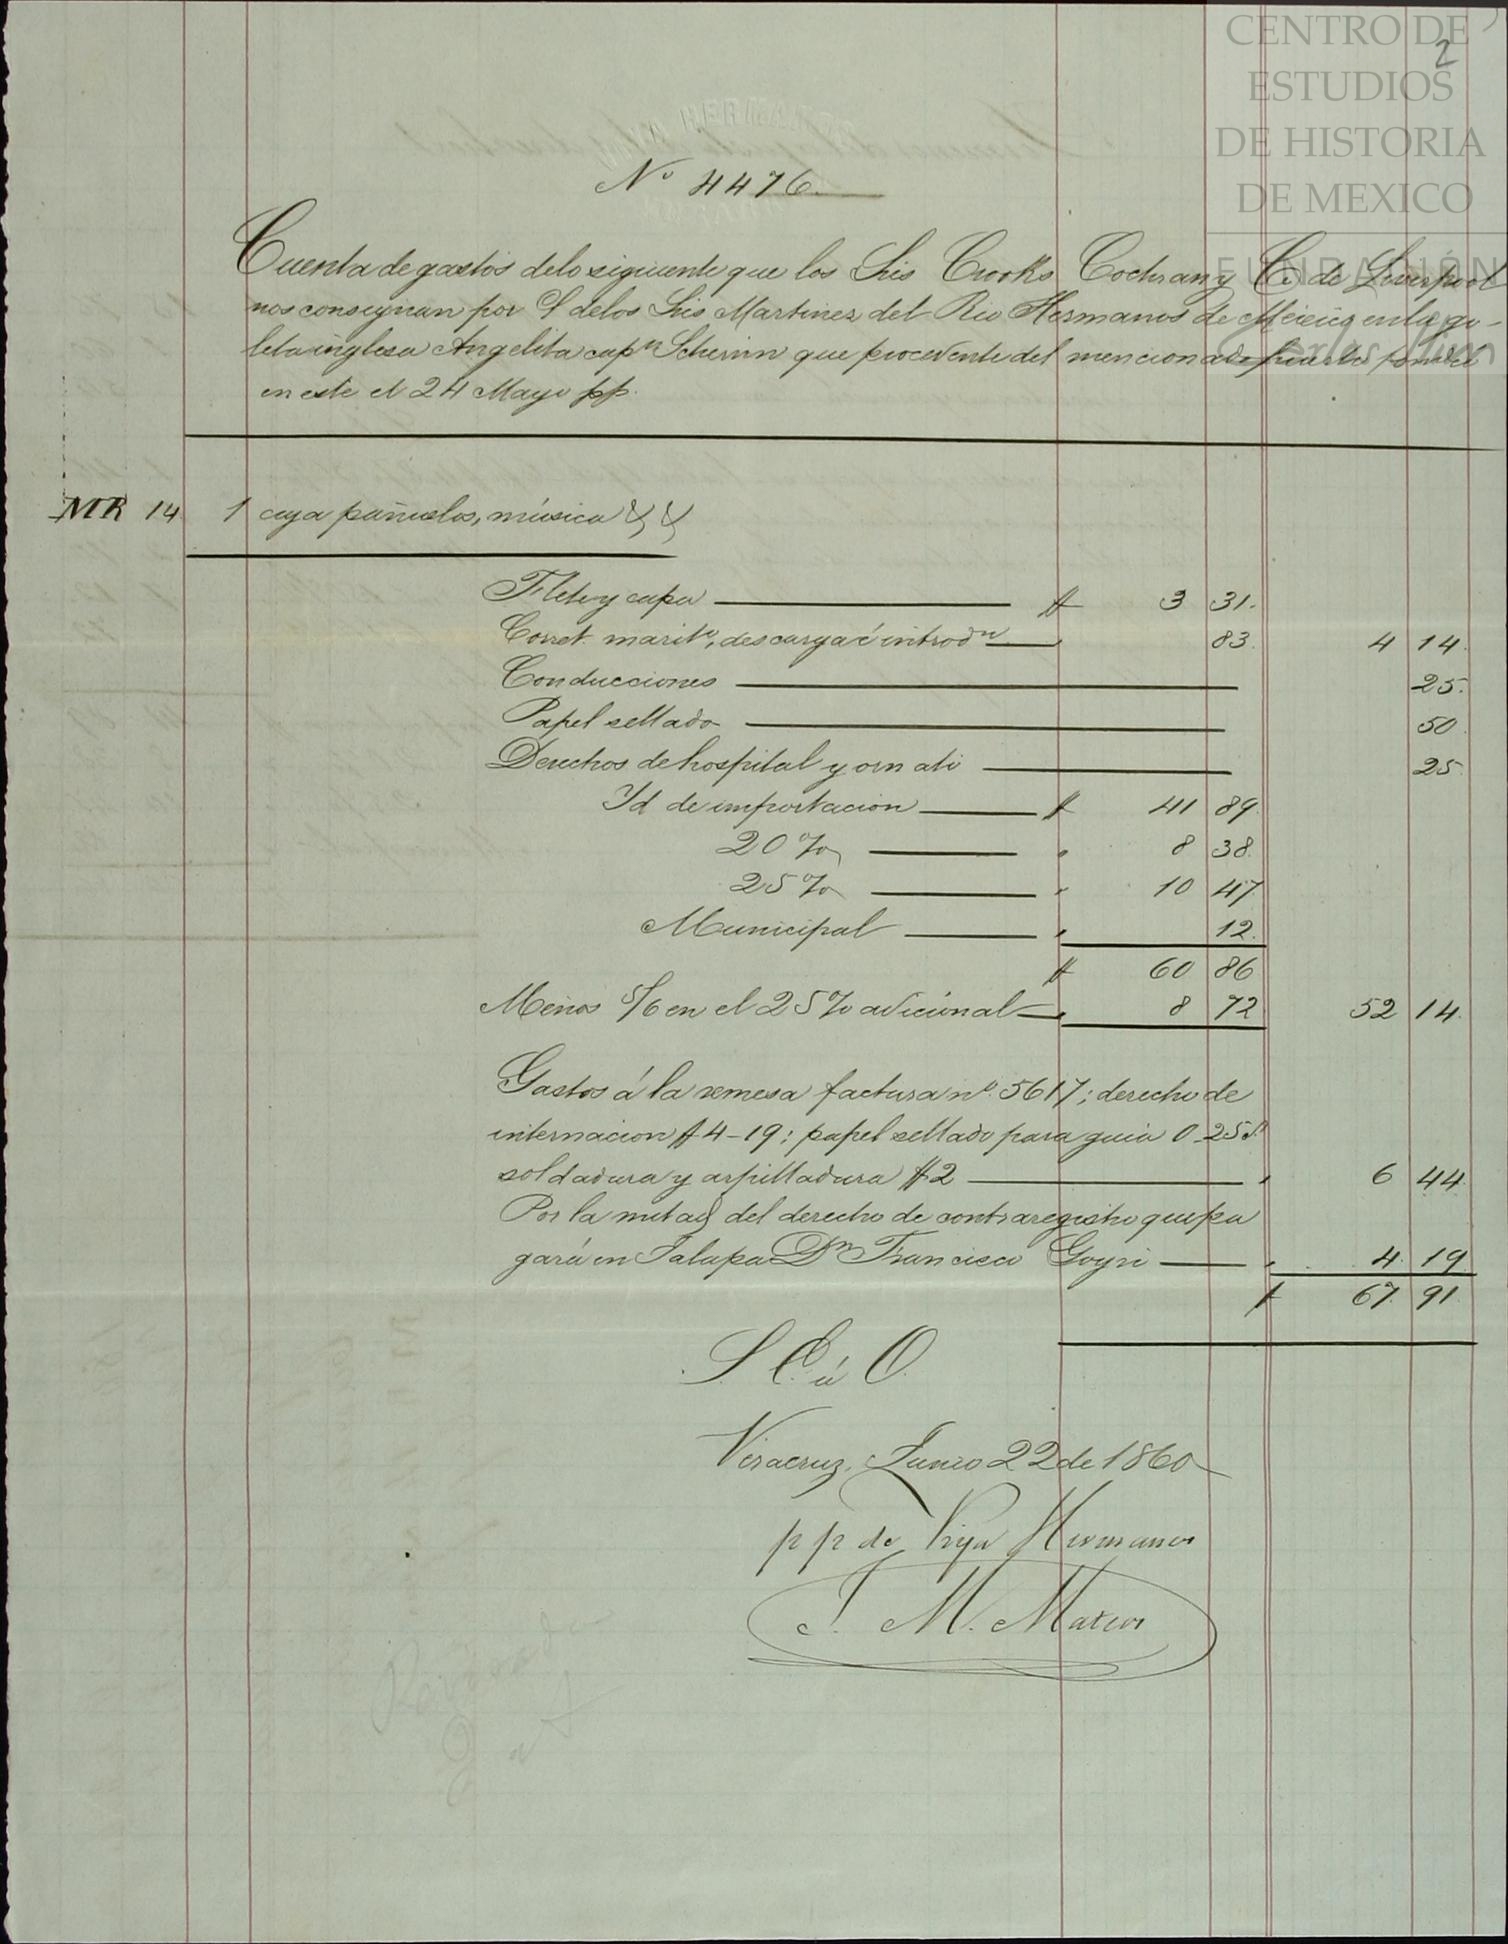 CENTRO DE
ESTUDIOS
DE HISTORIA
DE MEXICO
FUNDACIÓN
2
HERMANOS
Nº 4476.
Cuenta de gastos de lo siguiente que los Sres Crooks Cochran y Cª de Liverpool
nos consignan por C/ de los Sres Martinez del Rio Hermanos de México en la go-
leta inglesa Angelita capn que procedente del mencionado puerto fondeó
en este el 24 Mayo pp.
MR 14 1 caja pañuelos, música & &
Flete y capa $ 3 31.
Corret. marite, descarga é introdn " 83. 4 14.
Conducciones 25.
Papel sellado 50.
Derechos de hospital y ornato 25.
Id de importacion $ 41 89.
20 % " 8 38.
25 % " 10 47
Municipal " 12.
$ 60 86
Menos 5/6 en el 25 % adicional " 8 72 52 14.
Gastos á la remesa factura nº 5617; derecho de
internacion $ 4-19; papel sellado para guia 0-25
soldadura y arpilladura $2 " 6 44
Por la mitad del derecho de contraregistro que pa
gará en Jalapa Dn Francisco Goyri " 4. 19
$ 67. 91.
S. E. ú O.
Veracruz, Junio 22 de 1860
pp de Hermanos
J. M. Mateos